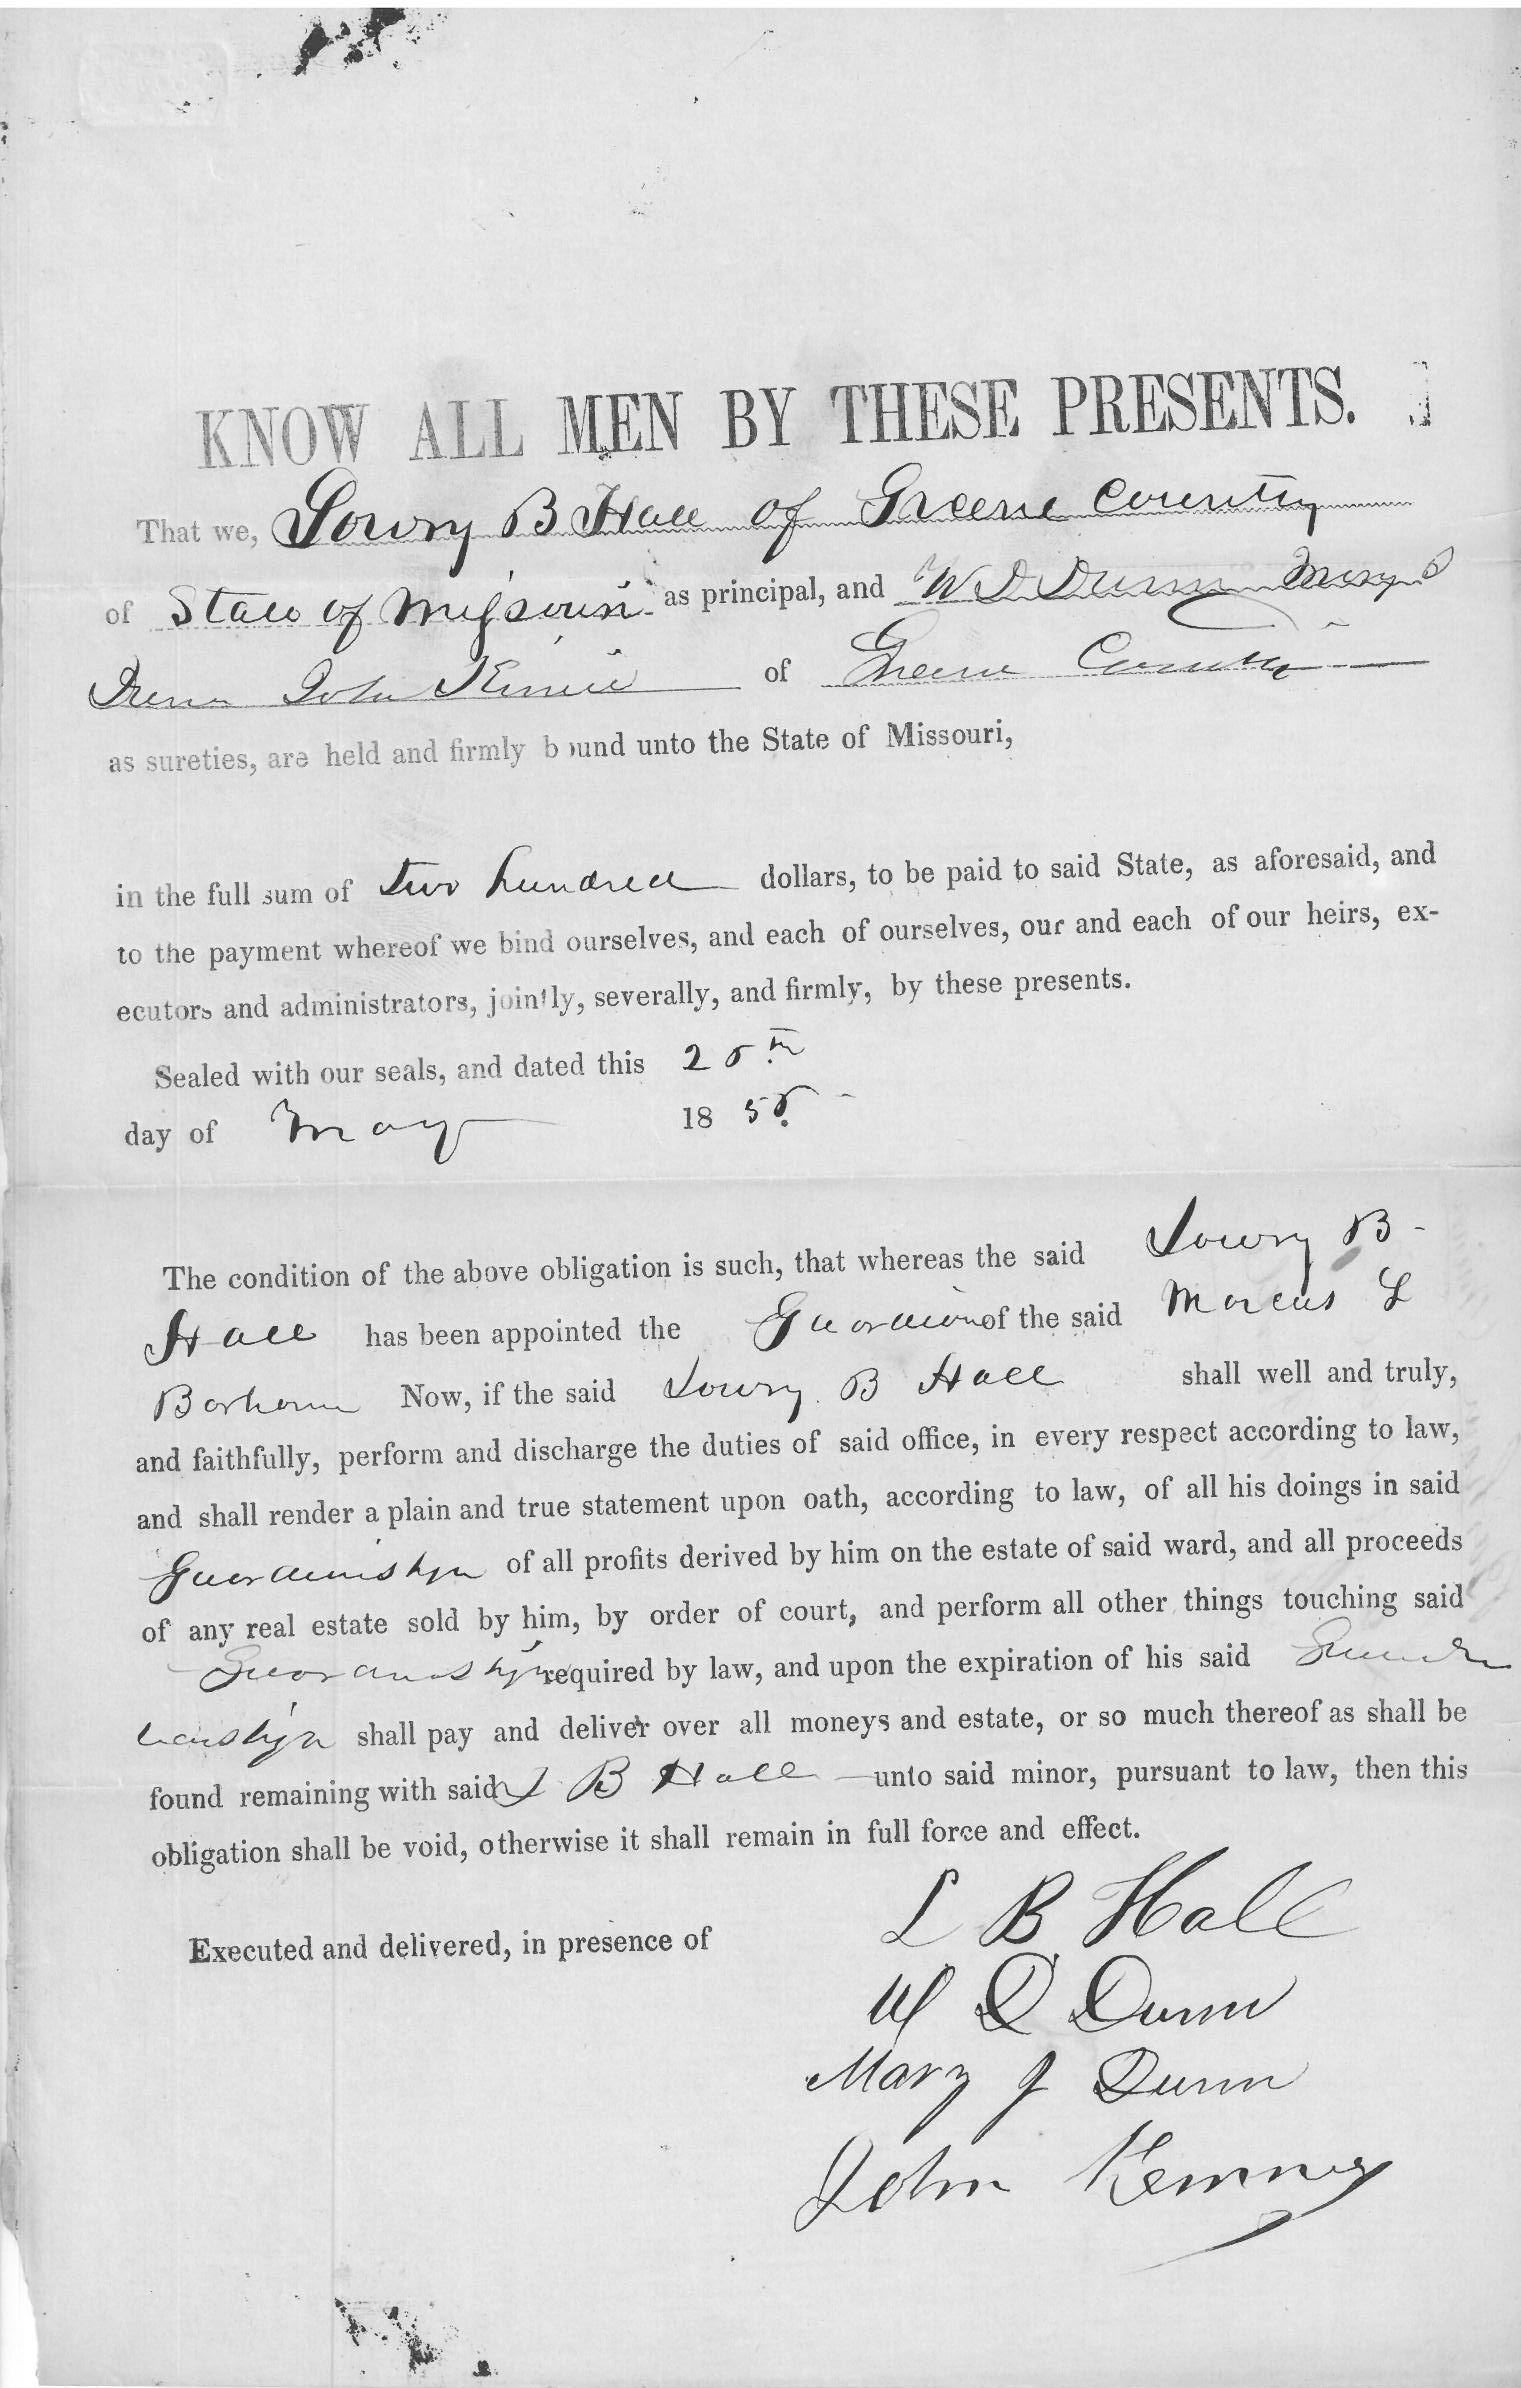 KNOW ALL MEN BY THESE PRESENTS.
That we, Lowry B Hall of Greene County
of State of Missouri as principal, and W D Dunn Mary J
Dunn John Kinney of Greene County
as sureties, are held and firmly bound unto the State of Missouri,
in the full sum of two hundred dollars, to be paid to said State, as aforesaid, and
to the payment whereof we bind ourselves, and each of ourselves, our and each of our heirs, ex-
ecutors and administrators, jointly, severally, and firmly, by these presents.
Sealed with our seals, and dated this 25th
day of May 1855
The condition of the above obligation is such, that whereas the said Lowry B
Hall has been appointed the Guardian of the said Marcus L
Barham Now, if the said Lowry B Hall shall well and truly,
and faithfully, perform and discharge the duties of said office, in every respect according to law,
and shall render a plain and true statement upon oath, according to law, of all his doings in said
Guardianship of all profits derived by him on the estate of said ward, and all proceeds
of any real estate sold by him, by order of court, and perform all other things touching said
Guardianship required by law, and upon the expiration of his said Guardi
anship shall pay and deliver over all moneys and estate, or so much thereof as shall be
found remaining with said L B Hall unto said minor, pursuant to law, then this
obligation shall be void, otherwise it shall remain in full force and effect.
Executed and delivered, in presence of
L B Hall
W D Dunn
Mary J Dunn
John Kenney